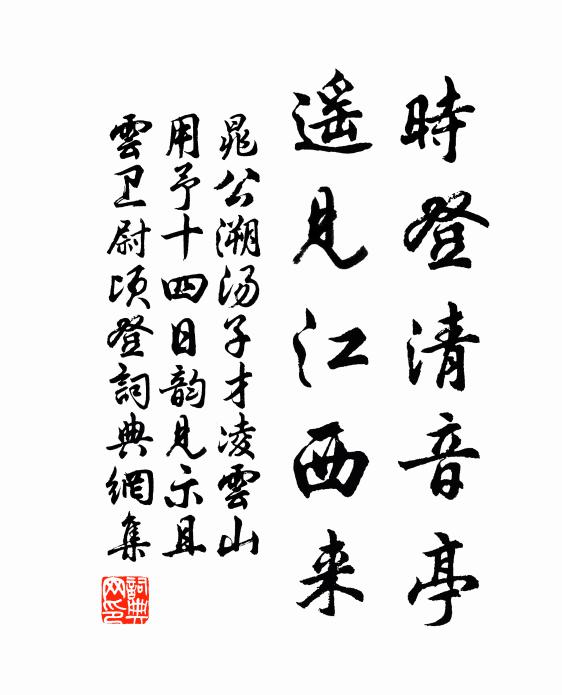 時登清音亭
遥見江西来
晁公溯汤子才凌雲山
用予十四日韵見示且
雲卫尉頃登詞典網集
詞典
网印